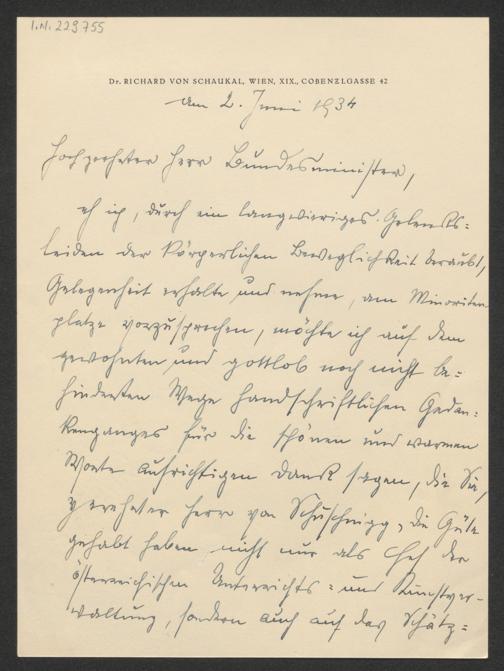 I.N. 229755
Dr. RICHARD VON SCHAUKAL, WIEN, XIX., COBENZLGASSE 42
am 2. Juni 1934
Hochgeehrter Herr Bundesminister,
eh ich, durch ein langwieriges Gelenks=
leiden der körperlichen Beweglichkeit beraubt,
Gelegenheit erhalte und nehme, am Minoriten
platze vorzusprechen, möchte ich auf dem
gewohnten und gottlob noch nicht be=
hinderten Wege handschriftlichen Gedan=
kenganges für die schönen und warmen
Worte aufrichtigen Dank sagen, die Sie,
verehrter Herr von Schuschnigg, die Güte
gehabt haben nicht nur als Chef der
österreichischen Unterrichts= und Kunstver=
waltung, sondern auch auf das Schätz=